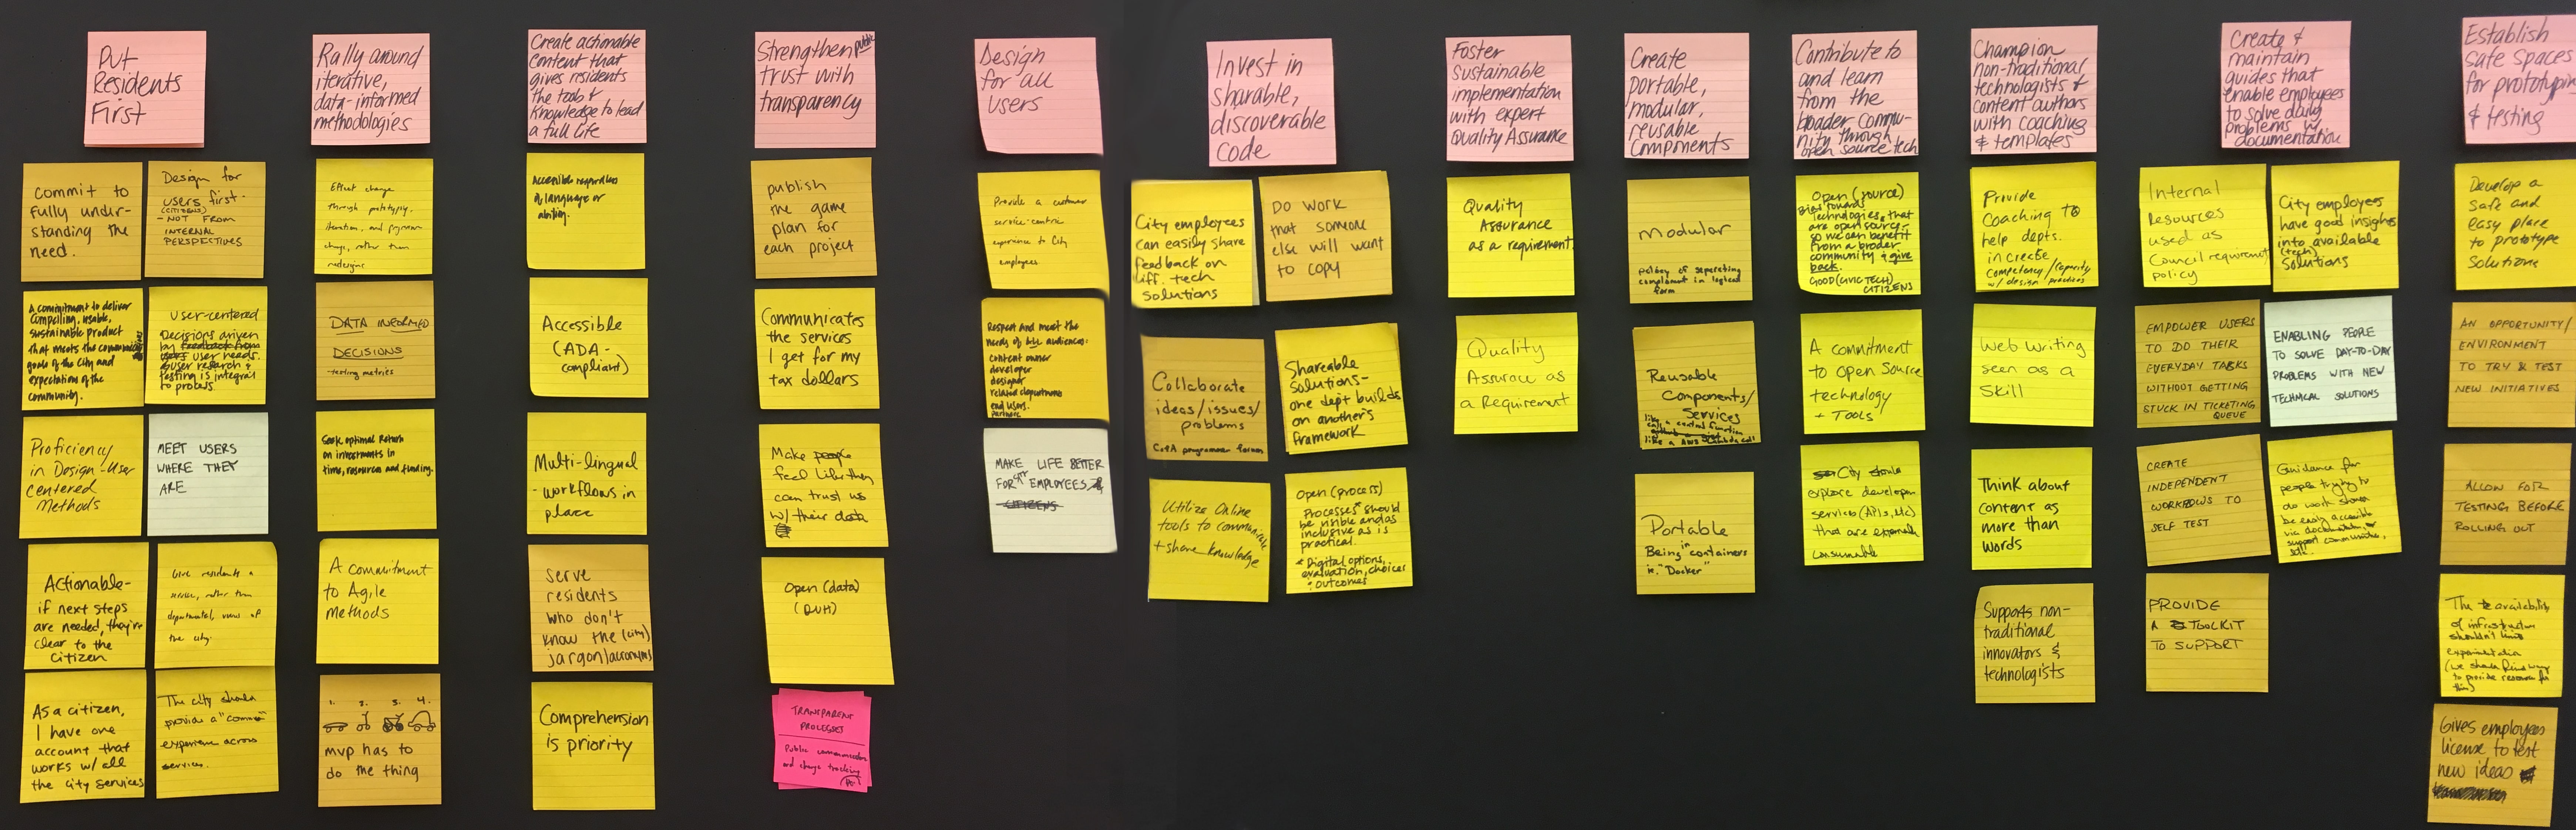 Put
Residents
First
Commit to
fully under-
standing the
need.
Design for
users first-
(CITIZENS)
- NOT FROM
INTERNAL
PERSPECTIVES
A commitment to deliver
compelling, usable,
sustainable product
that meets the
goals of the City and
expectation of the
community.
User-centered
Decisions driven
by
user needs.
user research &
testing is integral
to process.
Proficiency
in Design-User
Centered
Methods
MEET USERS
WHERE THEY
ARE
Actionable-
if next steps
are needed, they're
clear to the
citizen
Give residents a
service, rather than
departmental, view of
the city.
As a citizen,
I have one
account that
works w/ all
the city services
The city should
provide a "common"
experience across
services.
Rally around
iterative,
data-informed
methodologies
Effect change
through prototyping,
iteration, and
change, rather than
redesigns
DATA INFORMED
DECISIONS
- testing metrics
Seek optimal Return
on investments in
time, resources and funding.
A commitment
to Agile
Methods
1. 2. 3. 4.
mvp has to
do the thing
Create actionable
content that
gives residents
the tools &
knowledge to lead
a full life
Accessible regardless
of language or
ability.
Accessible
(ADA-
compliant)
Multi-lingual
- workflows in
place
Serve
residents
who don't
know the (city)
jargon/acronyms
Comprehension
is priority
Strengthen public
trust with
transparency
publish
the game
plan for
each project
Communicates
the services
I get for my
tax dollars
Make people
feel like they
can trust us
w/ their data
Open (data)
(DUH)
TRANSPARENT
PROCESSES
Public
and change tracking
Design
for all
users
Provide a customer
service-centric
experience to City
employees.
Respect and meet the
needs of audiences:
content owner
developer
designer
related departments
end users.
partners
MAKE LIFE BETTER
FOR CITY EMPLOYEES
CITIZENS
Invest in
sharable,
discoverable
code
City employees
can easily share
feedback on
diff. tech
solutions
DO WORK
that someone
else will want
to copy
Collaborate
ideas/issues/
problems
Shareable
Solutions-
one dept builds
on another's
framework
Utilize Online
tools to communicate
+ share knowledge
Open (process)
Processes* should
be visible and as
inclusive as is
practical.
* Digital options,
evaluation, choices
& outcomes
Foster
sustainable
implementation
with expert
Quality Assurance
Quality
Assurance
as a requirement
Quality
Assurance as
a Requirement
Create
portable,
modular,
reusable
components
Modular
of separating
component in logical
form
Reusable
Components/
Services
like a AWS Lambda call
Portable
Being in containers
ie. "Docker"
Contribute to
and learn
from the
broader commu-
nity through
open source tech
Open (source)
Bias towards
technologies that
are open source
so we can benefit
from a broader
community & give
back.
GOOD (CIVIC TECH)
CITIZENS
A commitment
to Open Source
technology
+ TOOLS
City should
explore developer
services (APIs, etc)
that are externally
consumable
Champion
non-traditional
technologists &
content authors
with coaching
& templates
Provide
Coaching to
help depts.
in create
competency/capacity
w/ design practices
Web Writing
seen as a
Skill
Think about
content as
more than
words
Supports non-
traditional
innovators &
technologists
Create &
maintain
guides that
enable employees
to solve daily
problems w/
documentation
Internal
Resources
used as
Council requirement/
policy
City employees
have good insights
into available
(tech)
solutions
EMPOWER USERS
TO DO THEIR
EVERYDAY TASKS
WITHOUT GETTING
STUCK IN TICKETING
QUEUE
ENABLING PEOPLE
TO SOLVE DAY-TO-DAY
PROBLEMS WITH NEW
TECHNICAL SOLUTIONS
CREATE
INDEPENDENT
WORKFLOWS TO
SELF TEST
Guidance for
people trying to
do work should
be easily accessible
via documentation, or
support communities,
PROVIDE
A TOOLKIT
TO SUPPORT
Establish
safe spaces
for prototyping
& testing
Develop a
Safe and
easy place
to prototype
Solutions
AN OPPORTUNITY/
ENVIRONMENT
TO TRY & TEST
NEW INITIATIVES
ALLOW FOR
TESTING BEFORE
ROLLING OUT
The availability
of infrastructure
shouldn't limit
experimentation
(we should find ways
to provide resources for
this)
Gives employees
license to test
new ideas